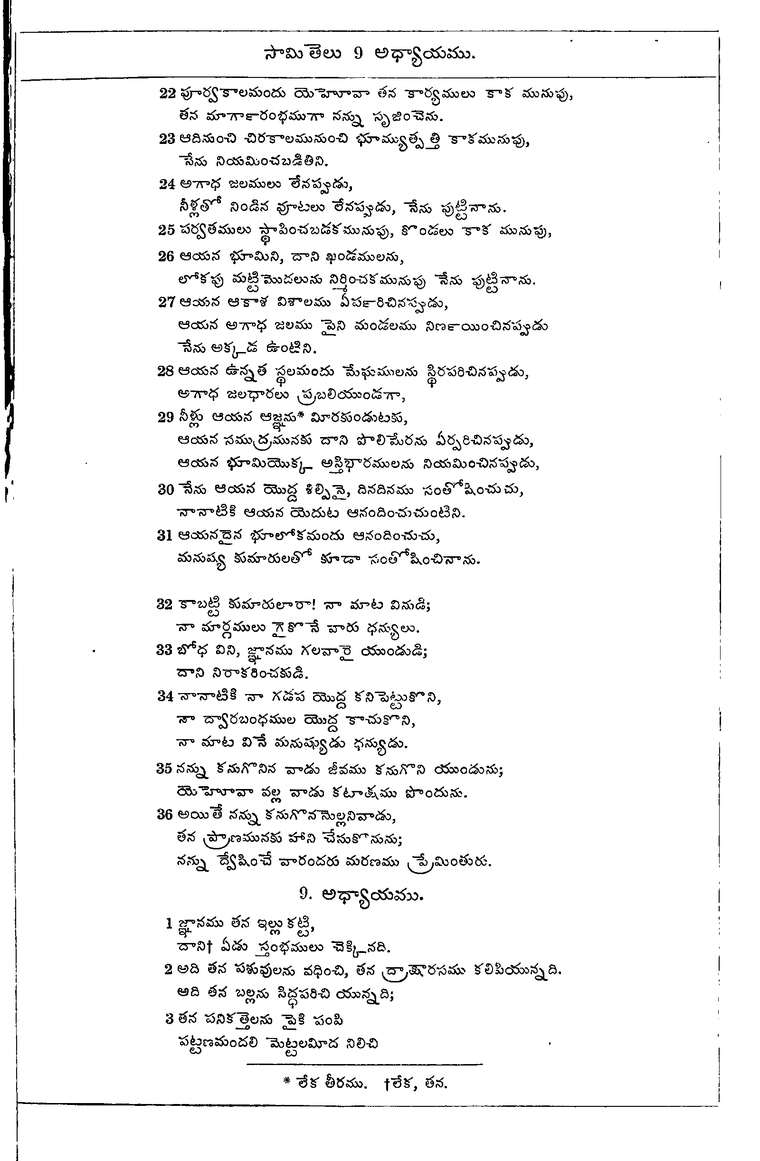 సామితెలు 9 అధ్యాయము.
22 పూర్వకాలమందు యెహోవా తన కార్యములు కాక మునుపు,
తన మార్గారంభముగా నన్ను సృజించెను.
23 ఆదినుంచి చిరకాలమునుంచి భూమ్యుత్పత్తి కాకమునుపు,
నేను నియమించబడితిని.
24 అగాధ జలములు లేనప్పుడు,
నీళ్లతో నిండిన వూటలు లేనప్పుడు, నేను పుట్టినాను.
25 పర్వతములు స్థాపించబడకమునుపు, కొండలు కాక మునుపు,
26 ఆయన భూమిని, దాని ఖండములను,
లోకపు మట్టిమొదలును నిర్మించకమునుపు నేను పుట్టినాను.
27 ఆయన ఆకాశ విశాలము యేర్పరిచినప్పుడు,
ఆయన అగాధ జలము పైని మండలము నిర్ణయించినప్పుడు
నేను అక్కడ ఉంటిని.
28 ఆయన ఉన్నత స్థలమందు మేఘములను స్థిరపరిచినప్పుడు,
అగాధ జలధారలు ప్రబలియుండగా,
29 నీళ్లు ఆయన ఆజ్ఞను* మీరకుండుటకు,
ఆయన సముద్రమునకు దాని పొలిమేరను ఏర్పరిచినప్పుడు,
ఆయన భూమియొక్క అస్తిభారములను నియమించినప్పుడు,
30 నేను ఆయన యొద్ద శిల్పినై, దినదినము సంతోషించుచు,
నానాటికి ఆయన యెదుట ఆనందించుచుంటిని.
31 ఆయనదైన భూలోకమందు ఆనందించుచు,
మనుష్య కుమారులతో కూడా సంతోషించినాను.
32 కాబట్టి కుమారులారా! నా మాట వినుడి;
నా మార్గములు గైకొనే వారు ధన్యులు.
33 బోధ విని, జ్ఞానము గలవారై యుండుడి;
దాని నిరాకరించకుడి.
34 నానాటికి నా గడప యొద్ద కనిపెట్టుకొని,
నా ద్వారబంధముల యొద్ద కాచుకొని,
నా మాట వినే మనుష్యుడు ధన్యుడు.
35 నన్ను కనుగొనిన వాడు జీవము కనుగొని యుండును;
యెహోవా వల్ల వాడు కటాక్షము పొందును.
36 అయితే నన్ను కనుగొననొల్లనివాడు,
తన ప్రాణమునకు హాని చేసుకొనును;
నన్ను ద్వేషించే వారందరు మరణము ప్రేమింతురు.
9. అధ్యాయము.
1 జ్ఞానము తన ఇల్లు కట్టి,
దాని† ఏడు స్తంభములు చెక్కినది.
2 అది తన పశువులను వధించి, తన ద్రాక్షారసము కలిపియున్నది.
అది తన బల్లను సిద్ధపరిచి యున్నది;
3 తన పనికత్తెలను పైకి పంపి
పట్టణమందలి మెట్టలమీద నిలిచి
* లేక తీరము. †లేక, తన.